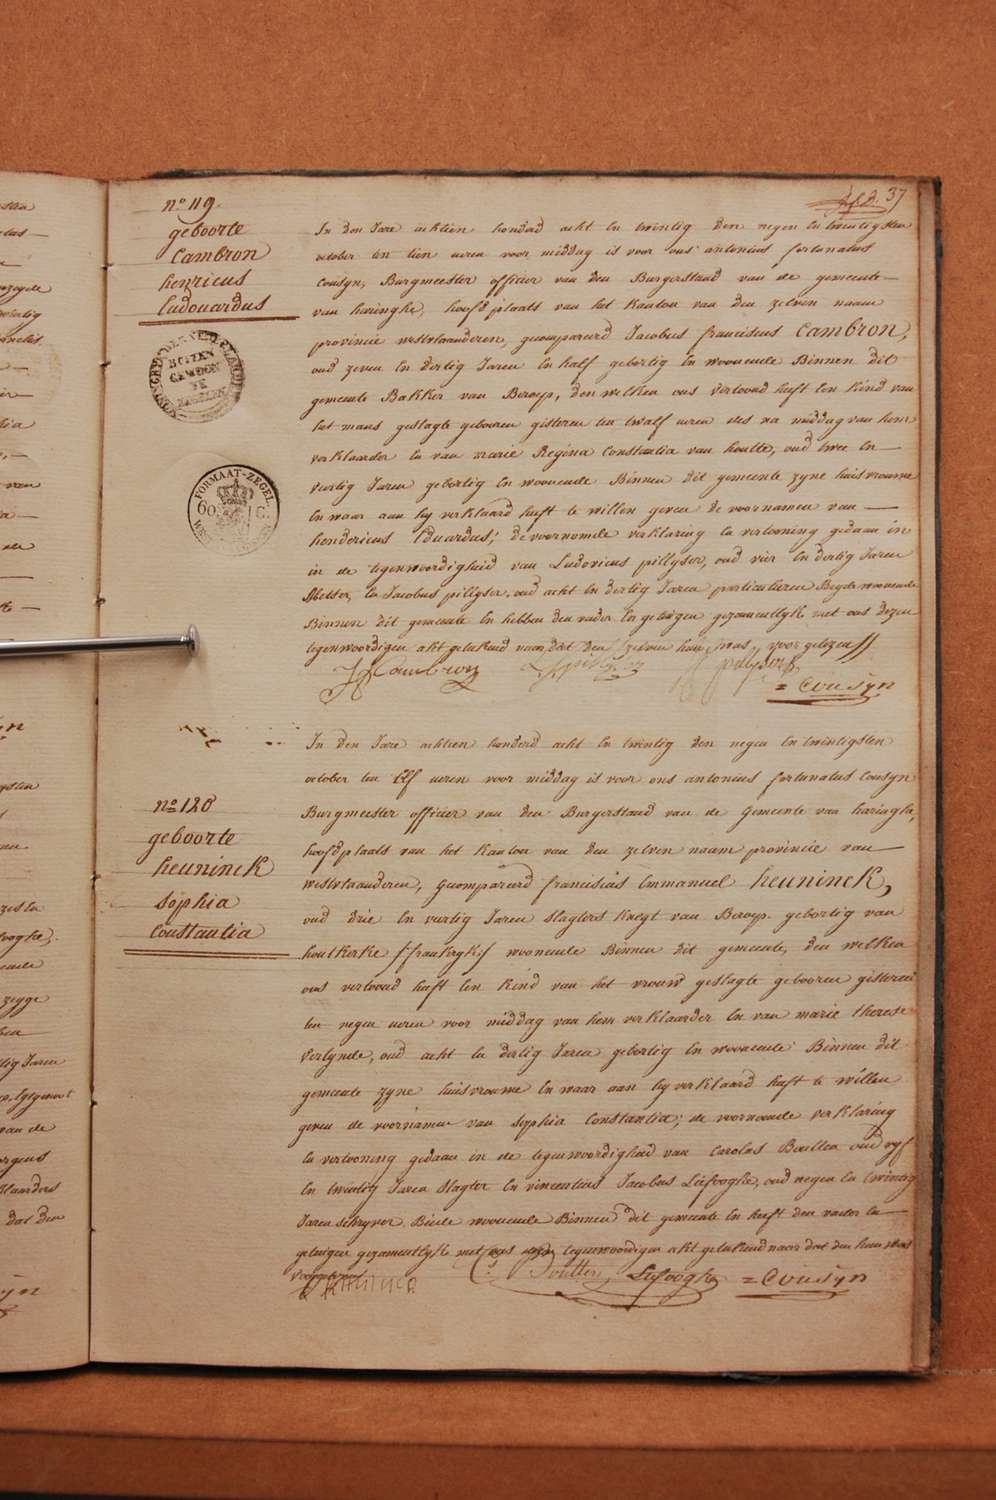 37
no 119
geboorte
Cambron
henricus
Eudouardus
FORMAAT-ZEGEL
60 C
In den Jare achtien honderd acht En twintig den negen En twintigsten
october ten tien ueren voor middag is voor ons antonius fortunatus
Cousyn, Burgmeester officier van den Burgerstand van de gemeente
van haringhe, hoofdplaats van het kanton van den zelven naam
provincie westvlaanderen, gecompareerd Jacobus franciscus Cambron,
oud zeven En dertig Jaren En half gebortig En woonende Binnen dit
gemeente Bakker van Beroep, den welken ons vertoond heeft Een kind van
het mans geslagte geboren gisteren ten twalf ueren des na middag van hem
verklaarder En van marie Regina Constantia van houtte, oud twee En
veertig Jaren gebortig En woonende Binnen dit gemeente zyne huisvrouwe
En waar aan hy verklaard heeft te willen geven de voornamen van
hendericus Eduardus; de voornoemde verklaring En vertooning gedaan in
in de tegenwoordigheid van Ludovicus pillyser, oud vier En dertig Jaren
Metser, En Jacobus pillyser, oud acht En dertig Jaren particulieren Beyde woonende
Binnen dit gemeente En hebben den vader En getuigen gezamentlyk met ons dezen
tegenwoordigen akt geteekend naar dat den zelven hun was voorgelezen
Cambron
= Cousyn
no 120
geboorte
heuninck
sophia
Constantia
In den Jare achtien honderd acht En twintig den negen En twintigsten
october ten Elf ueren voor middag is voor ons antonius fortunatus Cousyn
Burgmeester officier van den Burgerstand van de Gemeente van haringhe,
hoofdplaats van het kanton van den zelven naam provincie van
westvlaanderen, gecompareerd franciscus Emmanuel heuninck,
oud drie En veertig Jaren slagters knegt van Beroep. gebortig van
houtkerke (frankryk) woonende Binnen dit gemeente, den welken
ons vertoond heeft Een kind van het vrouw geslagte geboren gisteren
ten negen ueren voor middag van hem verklaarder En van marie therese
Verlynde, oud acht En dertig Jaren gebortig En woonende Binnen dit
gemeente zyne huisvrouwe En waar aan hy verklaard heeft te willen
geven de voornamen van sophia Constantia; de voornoemde verklaring
En vertooning gedaan in de tegenwoordigheid van Carolus oud vyf
En twintig Jaren slagter En vincentius Jacobus Liefooghe, oud negen En twintig
Jaren schryver Beide woonende Binnen dit gemeente En heeft den vader En
getuigen gezamentlyk met ons dezen tegenwoordigen akt geteekend naar dat den hun was
voorgelezen
Liefooghe = Cousyn